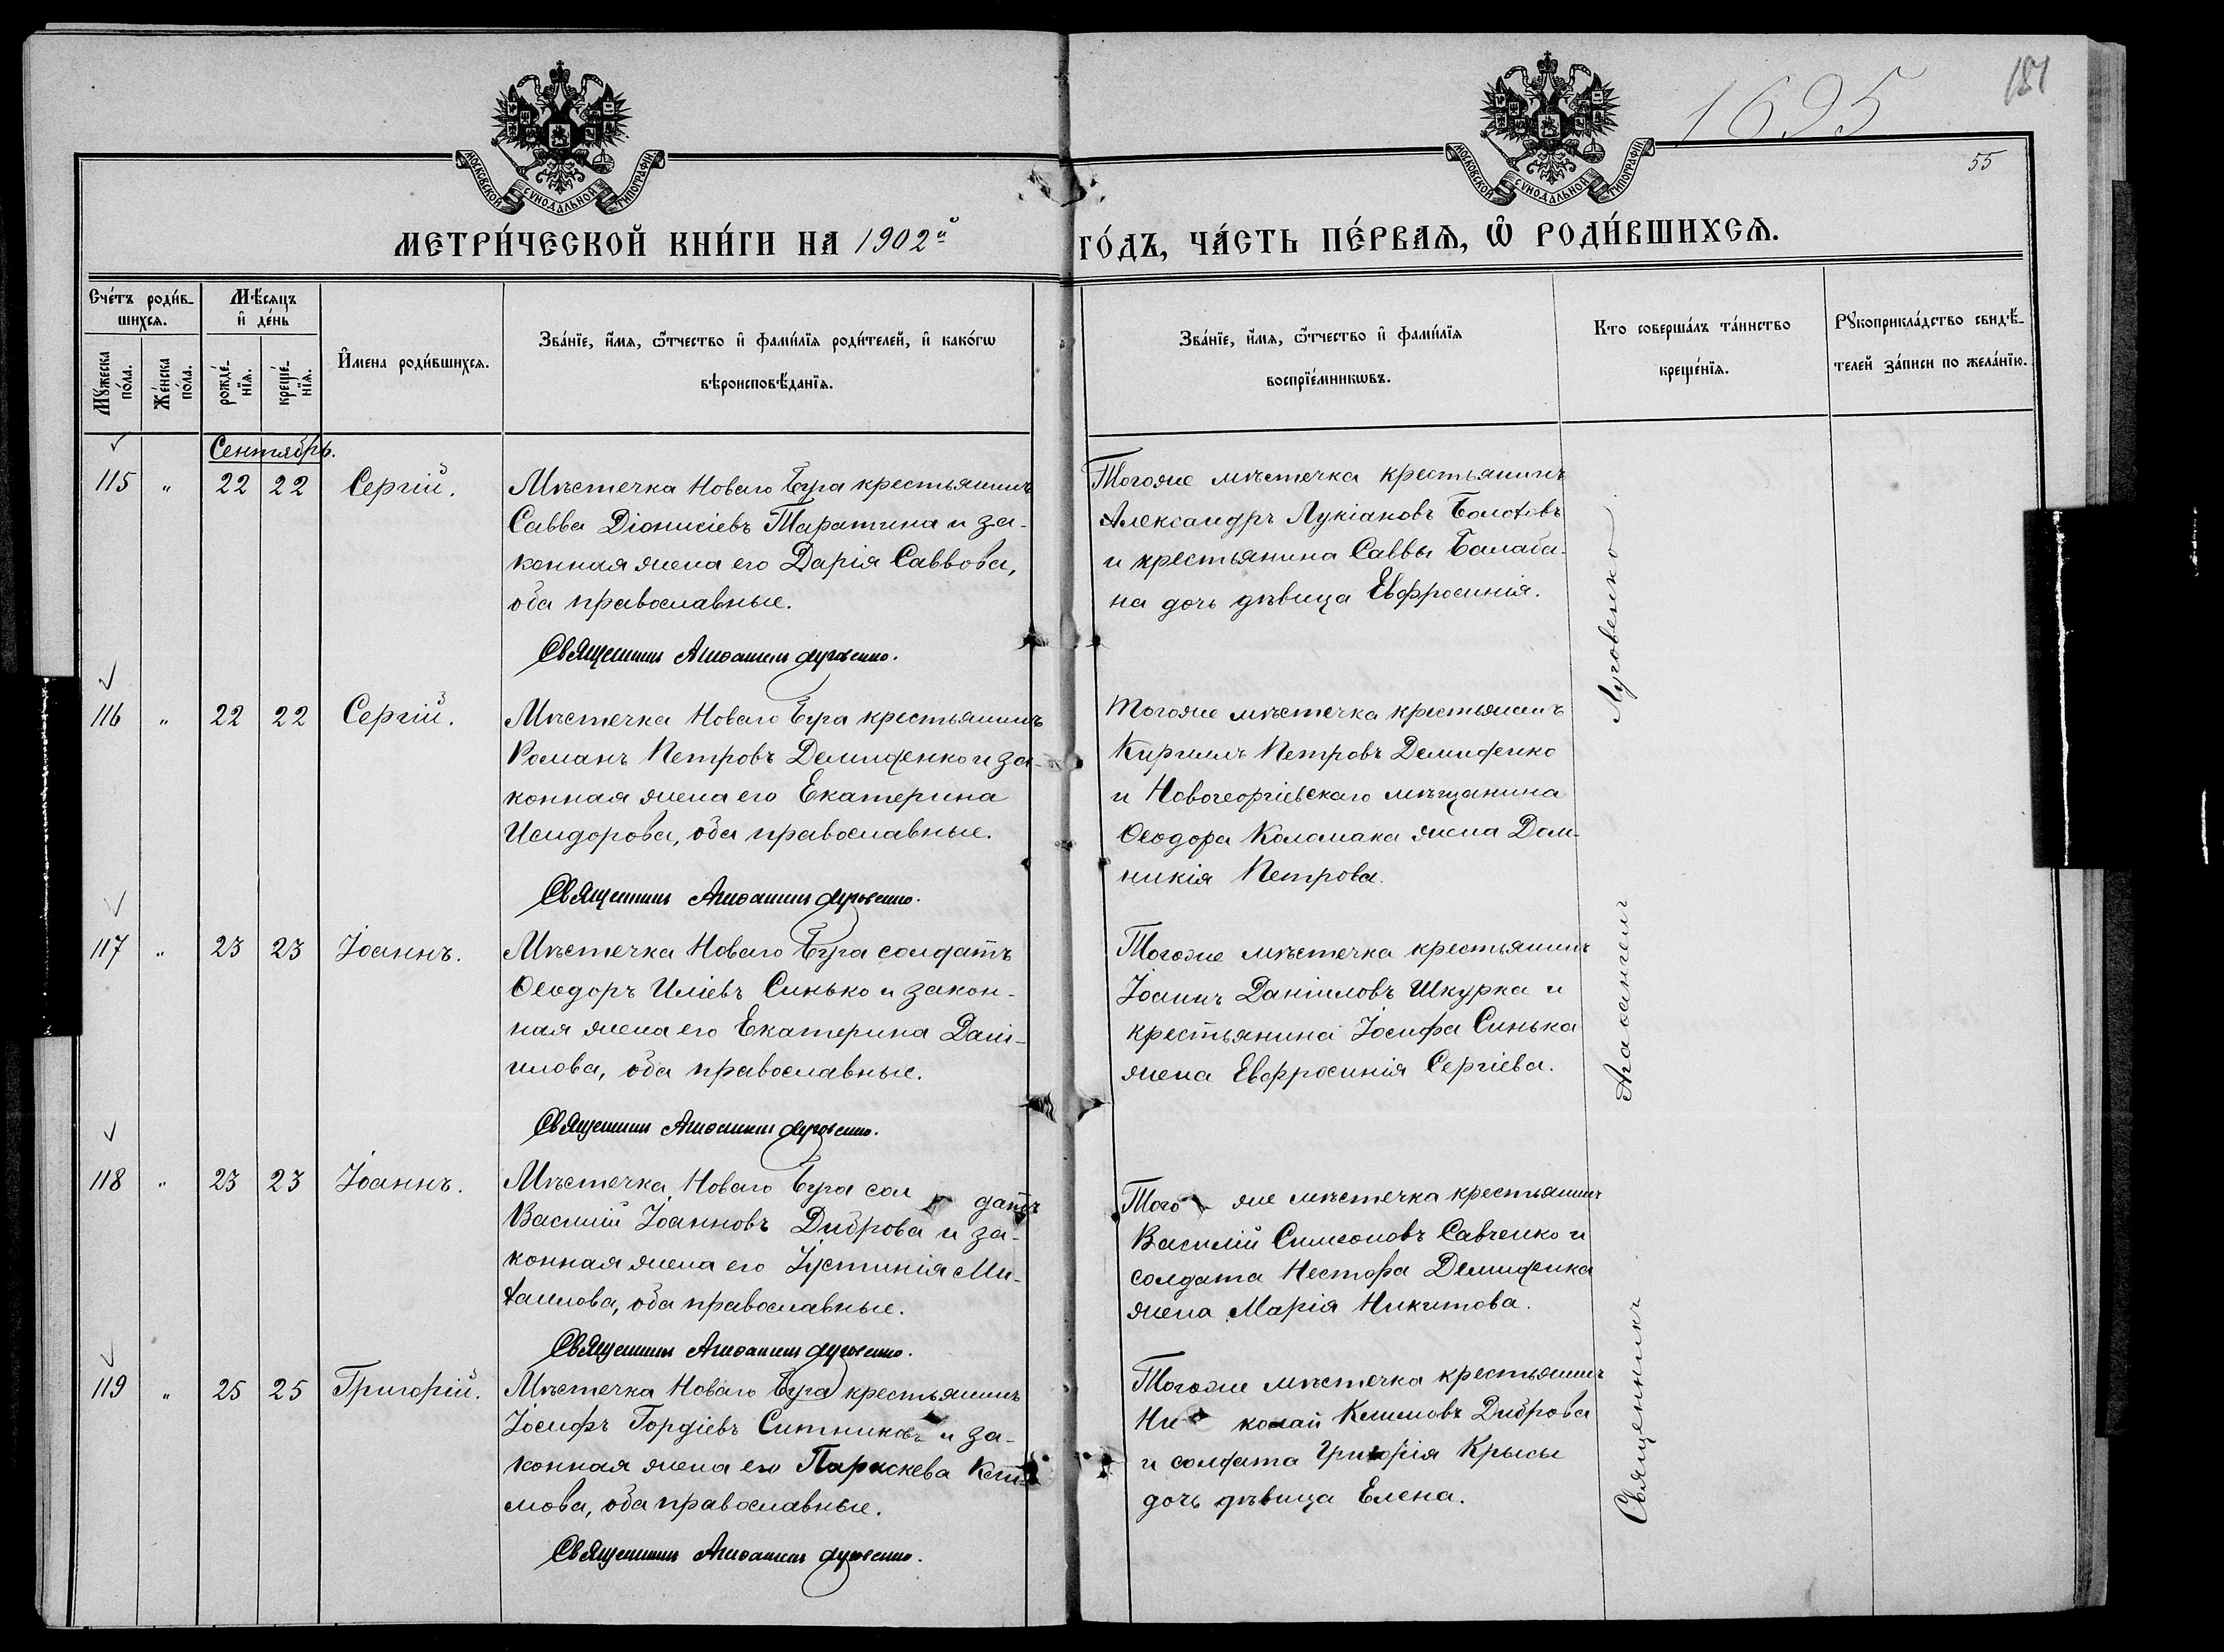 181
1695
55
МОСКОВСКОЙ СѴНОДАЛЬНОЙ ТИПОГРАФІИ
МОСКОВСКОЙ СѴНОДАЛЬНОЙ ТИПОГРАФІИ
МЕТРИ́ЧЕСКОЙ КНИ́ГИ НА 1902й ГО́ДЪ, ЧА́СТЬ ПЕ́РВАѦ, Ѽ РОДИ́ВШИХСѦ.
Сче́тъ роди́в-
шихсѧ.
Мꙋ́жеска по́ла.
Же́нска по́ла.
Мѣ́сѧцъ
и҆ де́нь
рожде́-
нїѧ.
креще́-
нїѧ.
И҆мена роди́вшихсѧ.
Зва́нїе, и҆́мѧ, ѻ҆́тчество и҆ фами́лїѧ роди́телей, и҆ како́гѡ
вѣроисповѣ́данїѧ.
Зва́нїе, и҆́мѧ, ѻ҆́тчество и҆ фами́лїѧ
воспрїе́мникѡвъ.
Кто соверша́лъ та́инство
креще́нїѧ.
Рꙋкоприкла́дство свидѣ́-
телей за́писи по жела́нїю.
Сентябрь.
115 " 22 22 Сергій.
Мѣстечка Новаго Буга крестьянинъ
Савва Діонисіевъ Таратина и за-
конная жена его Дарія Саввова,
оба православные.
Священникъ Агаѳангелъ Луговенко.
Тогоже мѣстечка крестьянинъ
Александръ Лукіановъ Болотовъ
и крестьянина Саввы Балаба-
на дочь дѣвица Евфросинія.
116 " 22 22 Сергій.
Мѣстечка Новаго Буга крестьянинъ
Романъ Петровъ Демиденко и за-
конная жена его Екатерина
Исидорова, оба православные.
Священникъ Агаѳангелъ Луговенко.
Тогоже мѣстечка крестьянинъ
Кириллъ Петровъ Демиденко
и Новогеоргіевскаго мѣщанина
Ѳеодора Коломака жена Дом-
никія Петрова.
117 " 23 23 Іоаннъ.
Мѣстечка Новаго Буга солдатъ
Ѳеодоръ Иліевъ Синько и закон-
ная жена его Екатерина Дані-
илова, оба православные.
Священникъ Агаѳангелъ Луговенко.
Тогоже мѣстечка крестьянинъ
Іоаннъ Даніиловъ Шкурка и
крестьянина Іосифа Синька
жена Евфросинія Сергіева.
118 " 23 23 Іоаннъ.
Мѣстечка Новаго Буга сол датъ
Василій Іоанновъ Диброва и за-
конная жена его Іустинія Ми-
хаилова, оба православные.
Священникъ Агаѳангелъ Луговенко.
Того же мѣстечка крестьянинъ
Василій Симеоновъ Савченко и
солдата Нестора Демиденка
жена Марія Никитова.
119 " 25 25 Григорій.
Мѣстечка Новаго Буга крестьянинъ
Іосифъ Гордіевъ Ситниковъ и за-
конная жена его Параскева Кли-
мова, оба православные.
Священникъ Агаѳангелъ Луговенко.
Тогоже мѣстечка крестьянинъ
Ни колай Климовъ Диброва
и солдата Григорія Крысы
дочь дѣвица Елена.
Священникъ Агаѳангелъ Луговенко